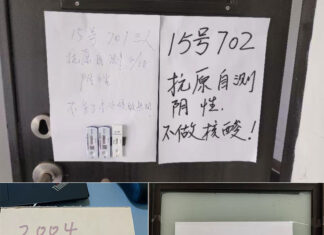 15号 701 三人
抗原自测
阴性
15号702
抗原自测
阴性.
不做核酸!
2004